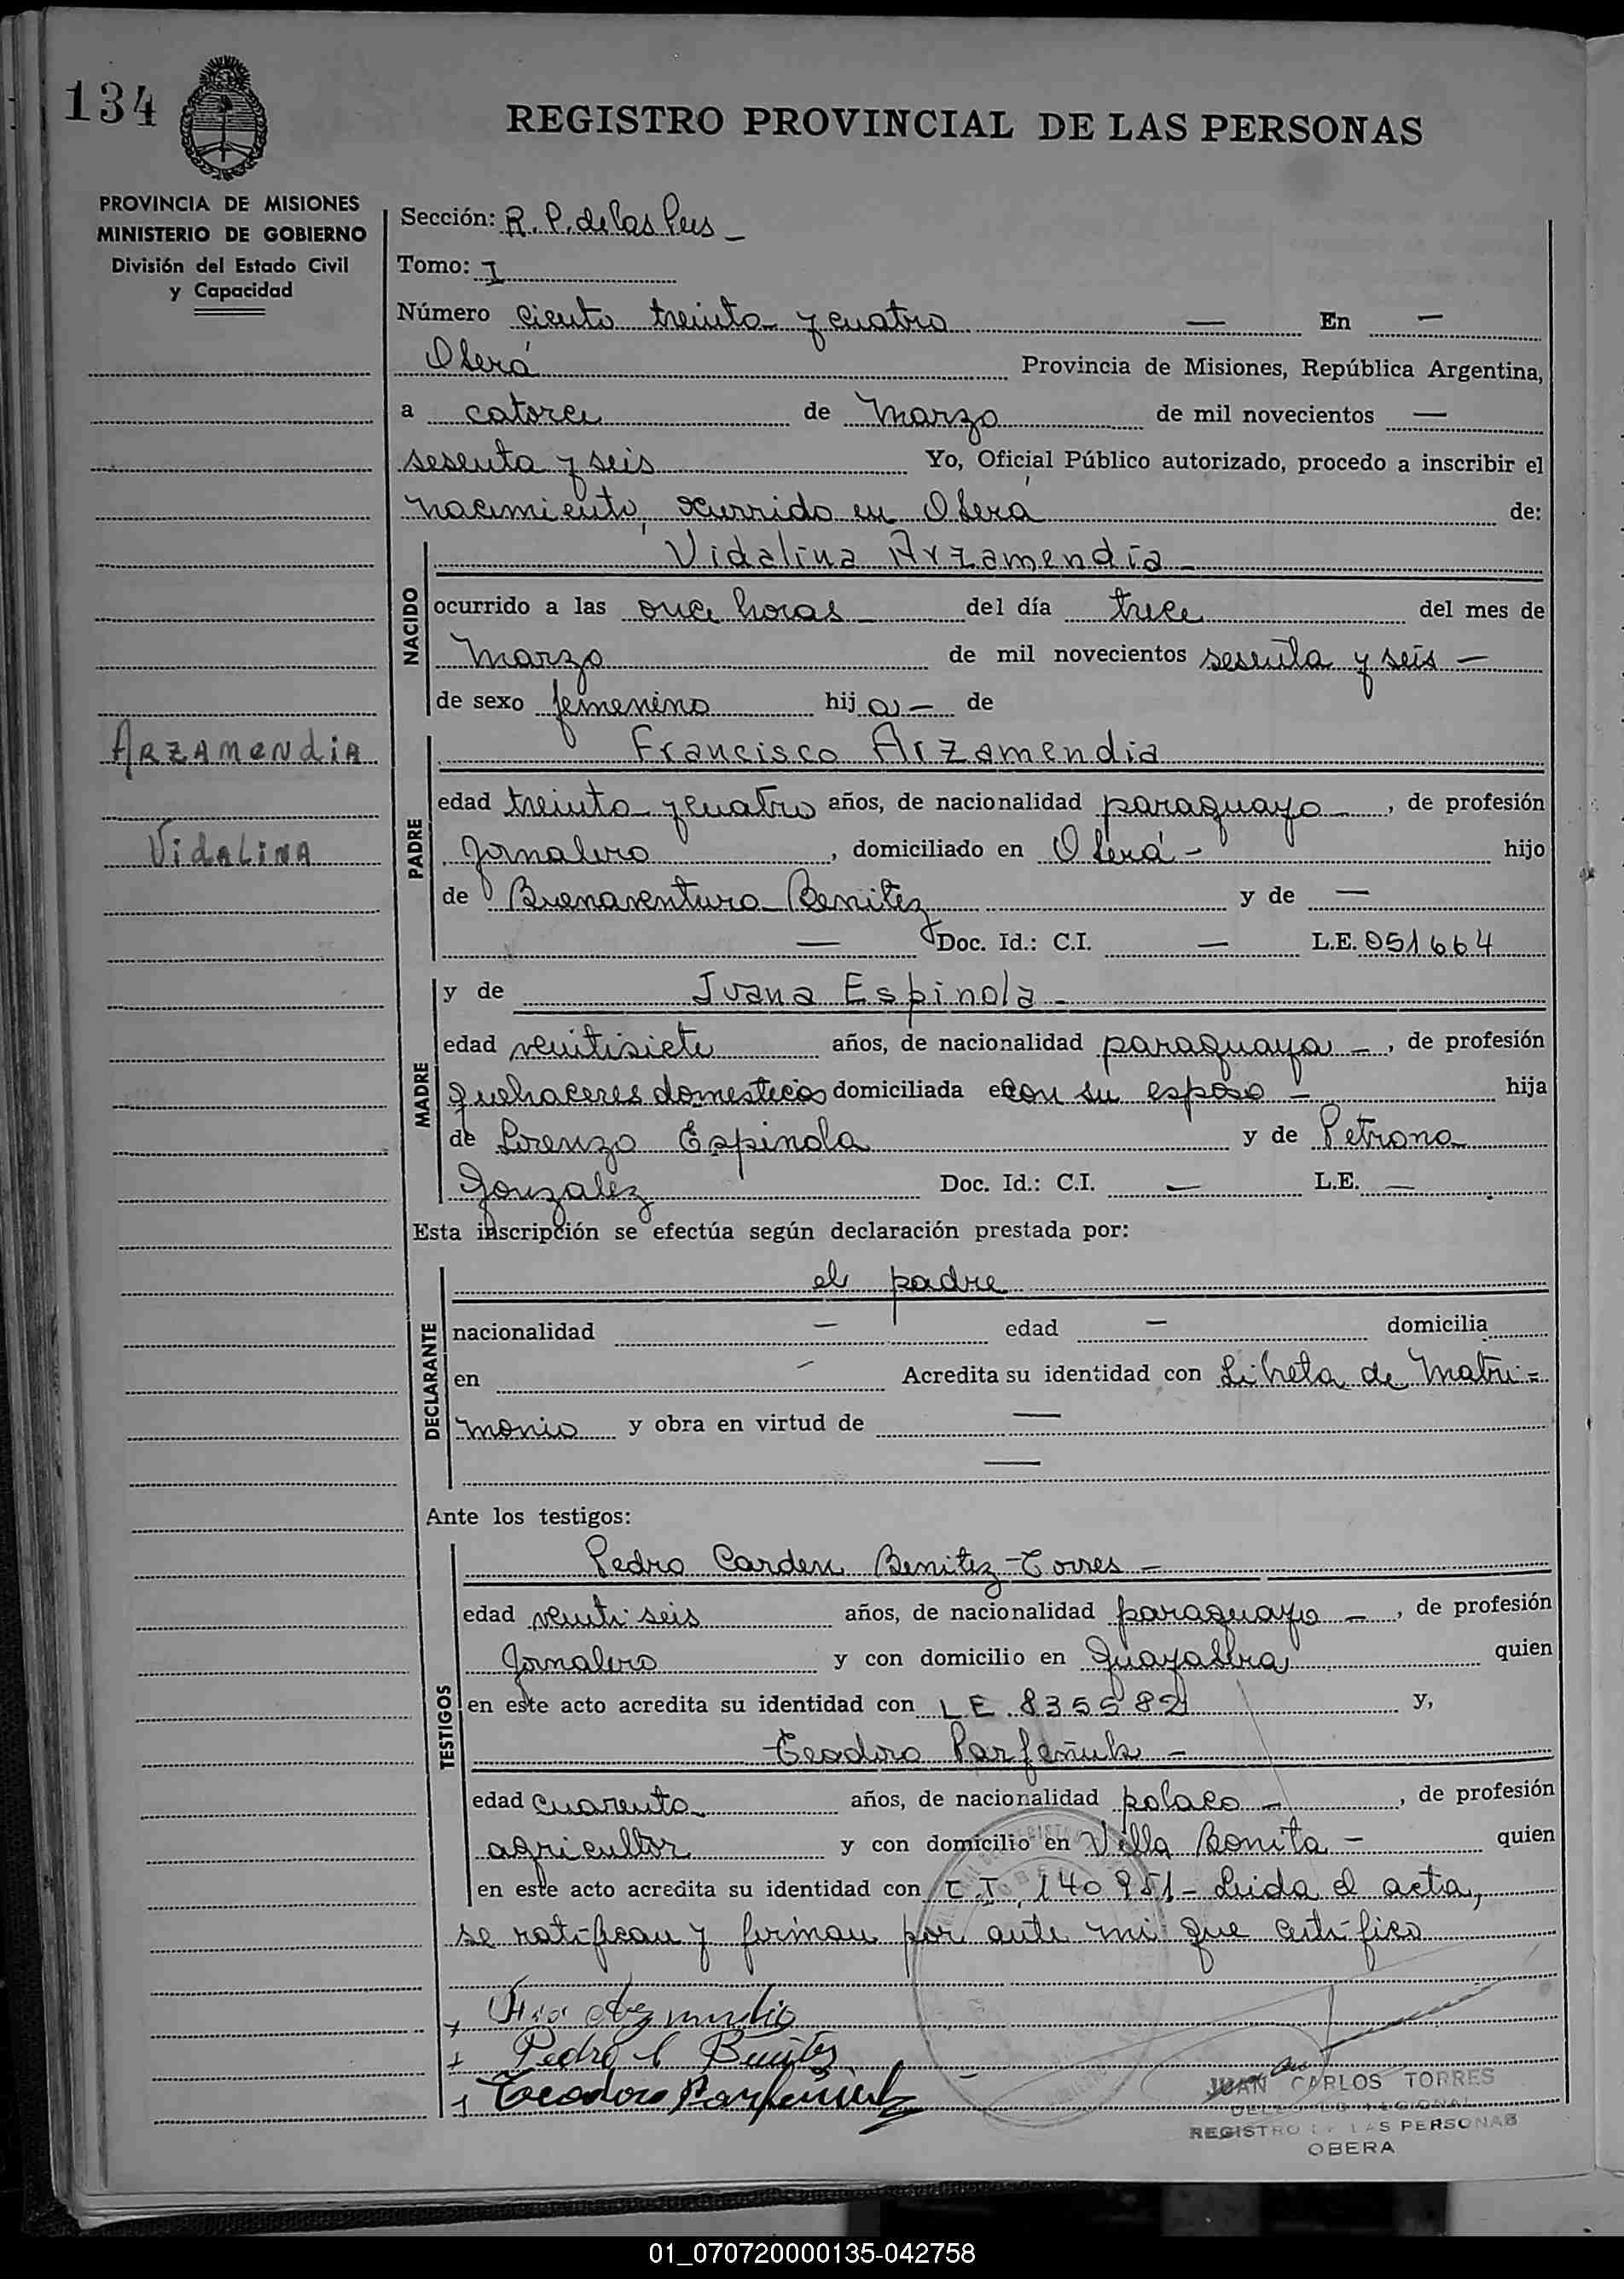 134
REGISTRO PROVINCIAL DE LAS PERSONAS
PROVINCIA DE MISIONES
MINISTERIO DE GOBIERNO
División del Estado Civil
y Capacidad
Sección: R. P. de las Pers -
Tomo: I
Número ciento treinta y cuatro — En —
Oberá Provincia de Misiones, República Argentina,
a catorce de Marzo de mil novecientos —
sesenta y seis Yo, Oficial Público autorizado, procedo a inscribir el
nacimiento, ocurrido en Oberá de:
NACIDO
Vidalina Arzamendia -
ocurrido a las once horas - del día trece del mes de
Marzo de mil novecientos sesenta y seis —
de sexo femenino hij a - de
ARZAMENDIA
VIDALINA
PADRE
Francisco Arzamendia
edad treinta y cuatro años, de nacionalidad paraguayo -, de profesión
Jornalero, domiciliado en Oberá - hijo
de Buenaventura Benitez y de —
— Doc. Id.: C.I. — L.E. 051664
MADRE
y de Juana Espinola -
edad veintisiete años, de nacionalidad paraguaya -, de profesión
quehaceres domesticos domiciliada en con su esposo - hija
de Lorenzo Espinola y de Petrona
Gonzalez Doc. Id.: C.I. — L.E. —
Esta inscripción se efectúa según declaración prestada por:
DECLARANTE
el padre
nacionalidad — edad — domicilia
en — Acredita su identidad con Libreta de Matri=
monio y obra en virtud de —
—
Ante los testigos:
TESTIGOS
Pedro Carden Benitez Torres -
edad veinti seis años, de nacionalidad paraguayo -, de profesión
Jornalero y con domicilio en quien
en este acto acredita su identidad con L E. 835582 y,
Teodoro Parfeñuk -
edad cuarenta años, de nacionalidad polaco -, de profesión
agricultor y con domicilio en Villa Bonita - quien
en este acto acredita su identidad con C.I. 140951 - Leida el acta,
se ratifican y firman por ante mi que certifico
Pedro C Benitez
Teodoro Parfeñuk
JUAN CARLOS TORRES
DELEGADO REGIONAL
REGISTRO DE LAS PERSONAS
OBERA
01_070720000135-042758